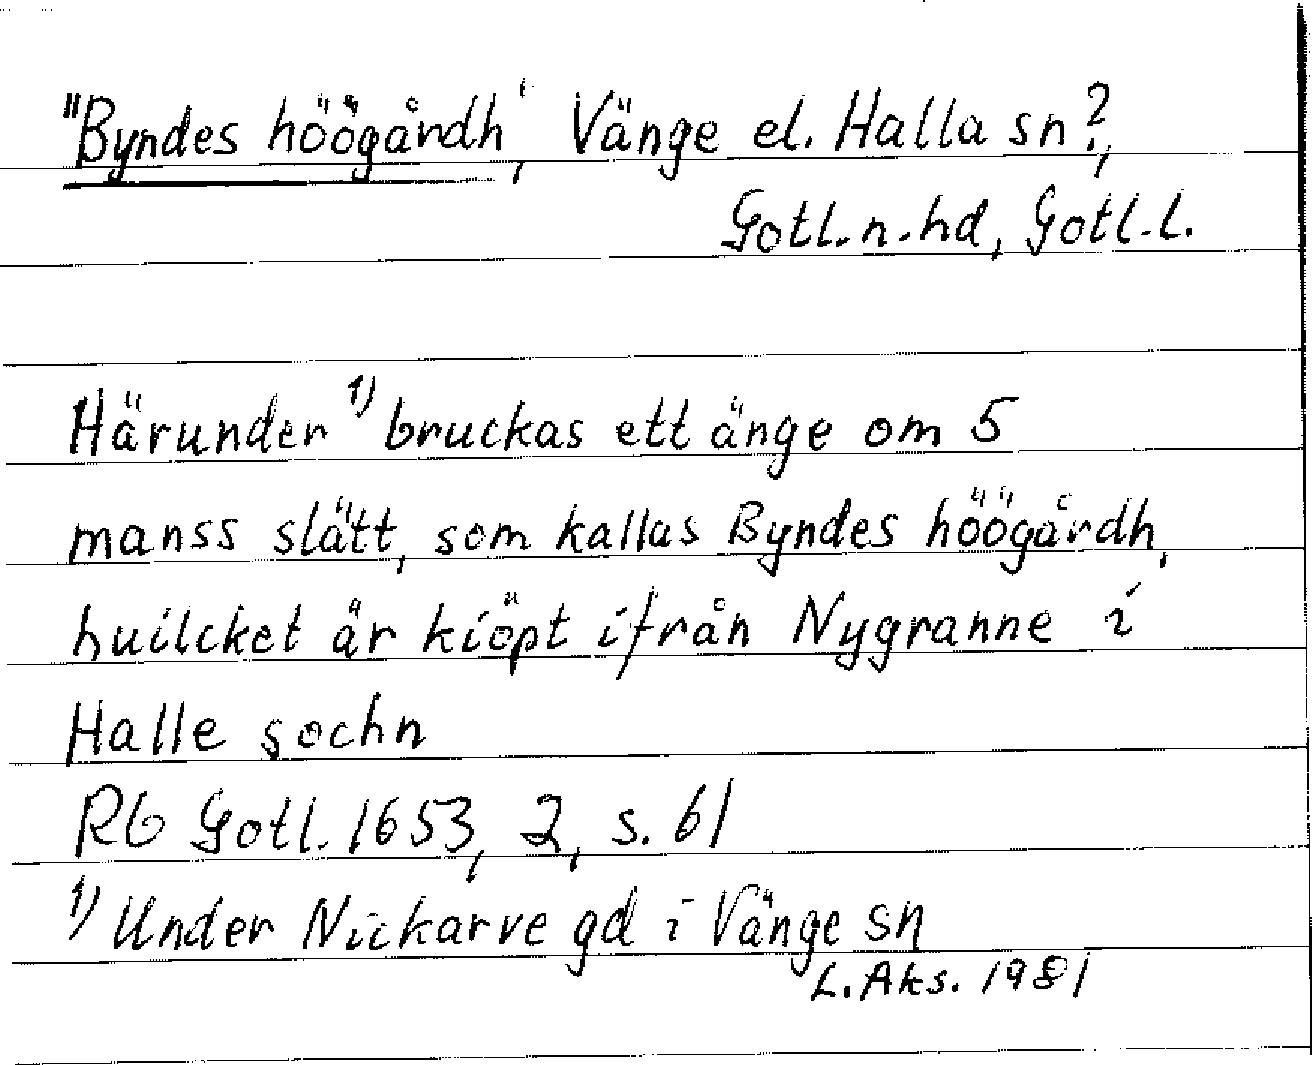 "Byndes höögårdh", Vänge el. Halla sn?,
Gotl. n. hd, Gotl. l.
Härunder 1) bruckas ett änge om 5
manss slätt, som kallas Byndes höögårdh,
huilcket är kiöpt ifrån Nygranne i
Halle sochn
Rb Gotl. 1653, 2, s. 61
1) Under Nickarve gd i Vänge sn
L. Aks. 1981